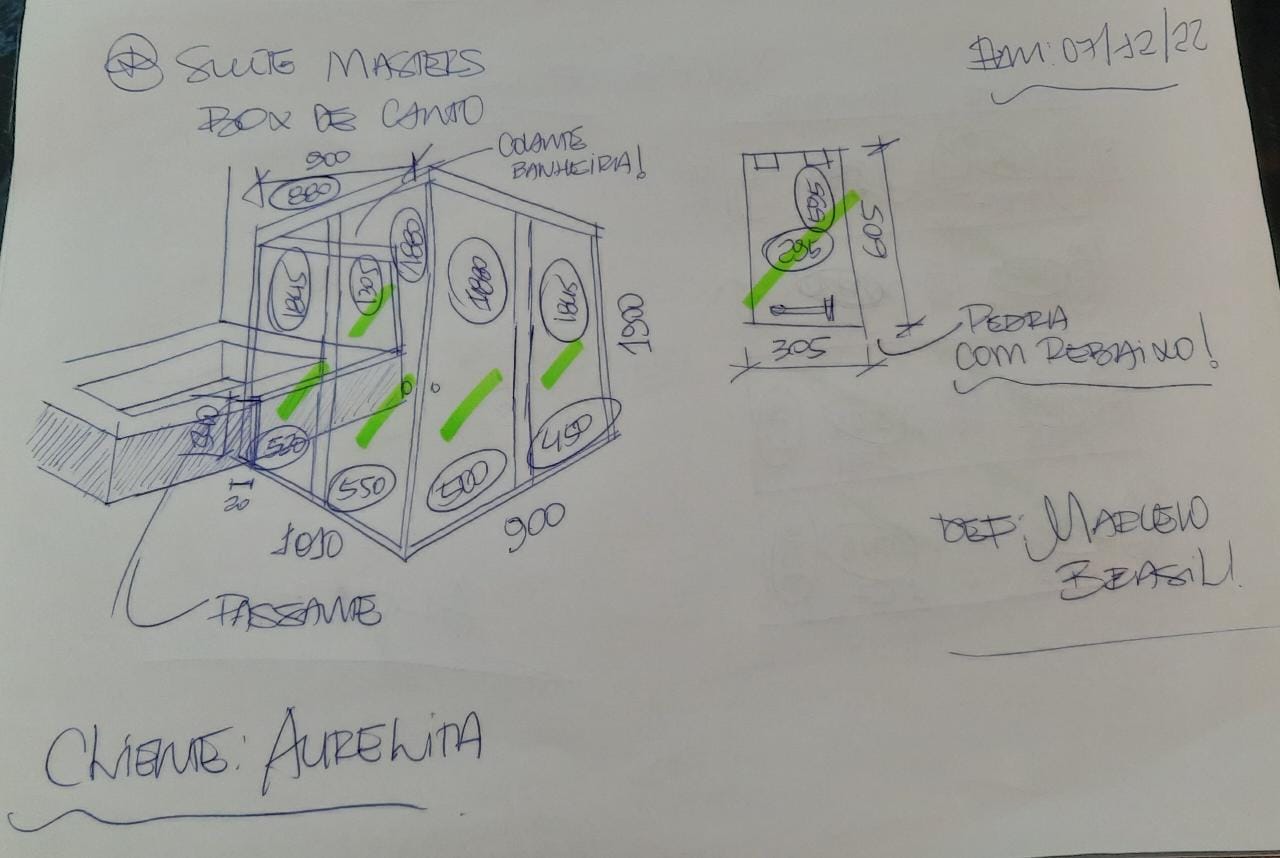 SUITE MASTERS
BOX DE CANTO
07/12/22
900
880
COLANTE
BANHEIRA!
1845
1305
1880
1880
1845
1900
520
550
500
450
20
1010
900
PASSANTE
595
295
605
305
PEDRA
COM REBAIXO!
REF: MARCELO
BRASIL!
CLIENTE: AURELITA